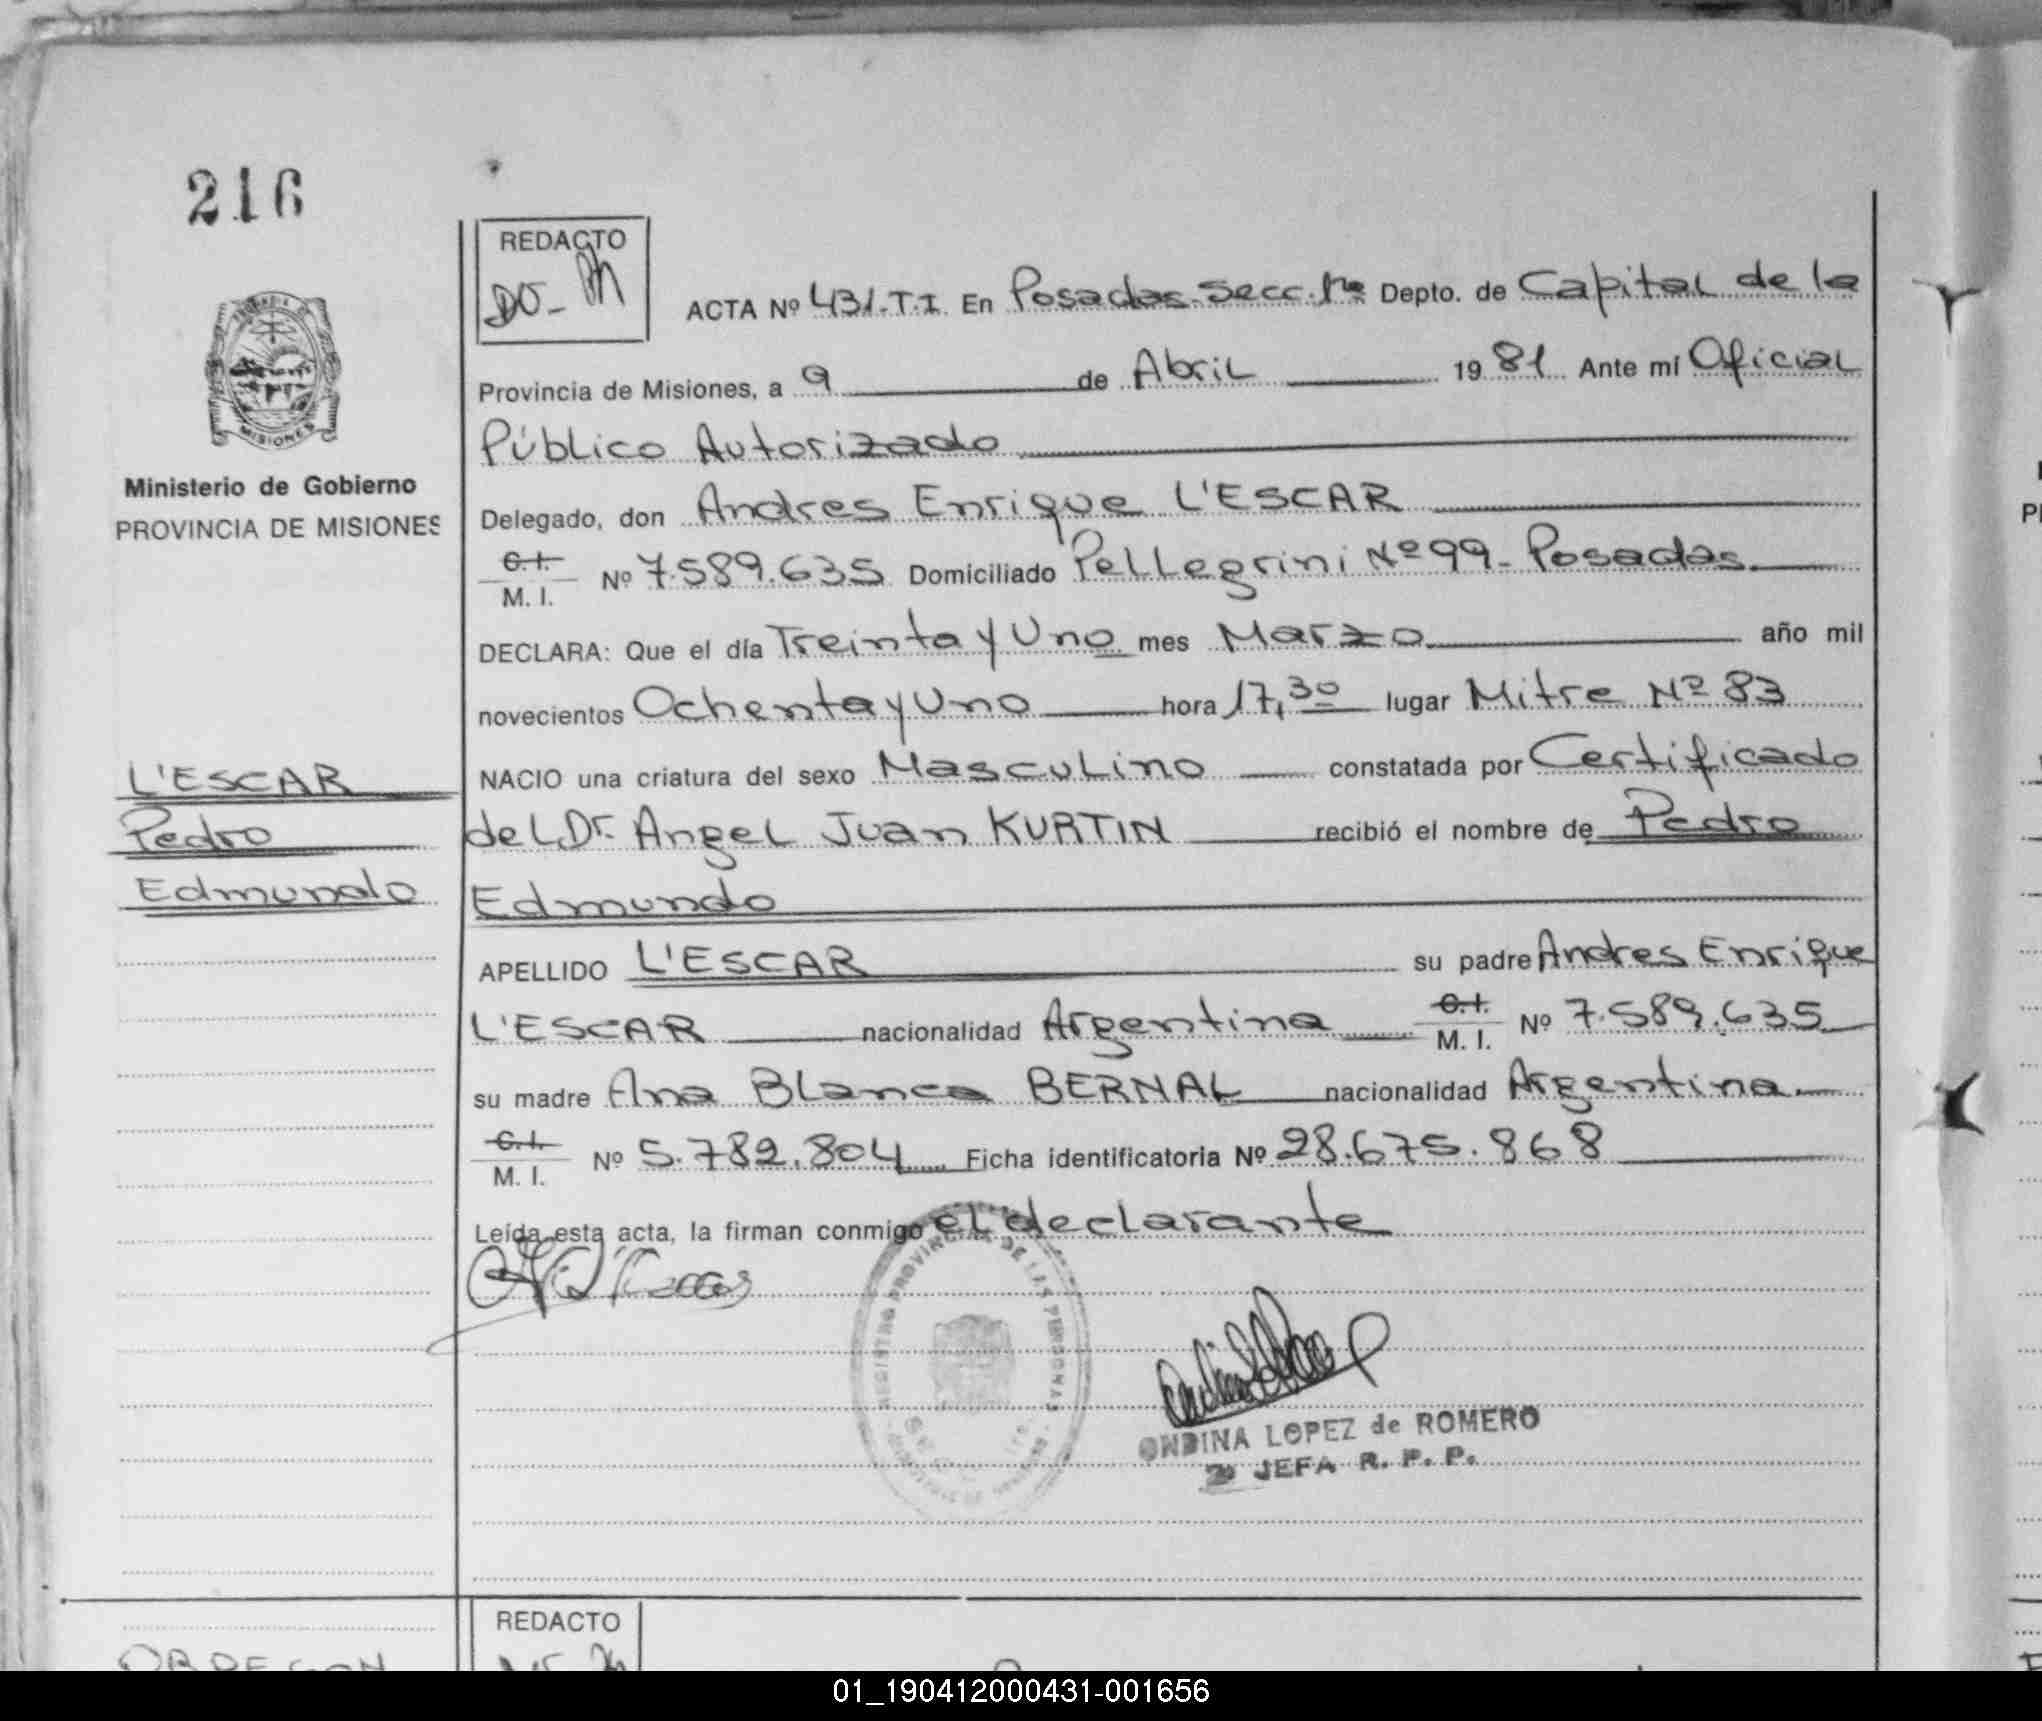 216
REDACTO
ACTA Nº 431.T.I. En Posadas.Secc.1ra Depto. de Capital de la
Provincia de Misiones, a 9 de Abril 1981 Ante mí Oficial
Público Autorizado
MISIONES
Ministerio de Gobierno
PROVINCIA DE MISIONES
Delegado, don Andres Enrique L'ESCAR
C.I.
M. I. Nº 7.589.635 Domiciliado Pellegrini Nº 99 - Posadas
DECLARA: Que el día Treinta y Uno mes Marzo año mil
novecientos Ochenta y Uno hora 17,30 lugar Mitre Nº 83
L'ESCAR
Pedro
Edmundo
NACIO una criatura del sexo Masculino constatada por Certificado
del Dr. Angel Juan KURTIN recibió el nombre de Pedro
Edmundo
APELLIDO L'ESCAR su padre Andres Enrique
L'ESCAR nacionalidad Argentina C.I. M. I. Nº 7.589.635
su madre Ana Blanca BERNAL nacionalidad Argentina
C.I.
M. I. Nº 5.782.804 Ficha identificatoria Nº 28.675.868
Leída esta acta, la firman conmigo el declarante
REGISTRO PROVINCIAL DE LAS PERSONAS
ONDINA LOPEZ de ROMERO
JEFA R. P. P.
REDACTO
01_190412000431-001656